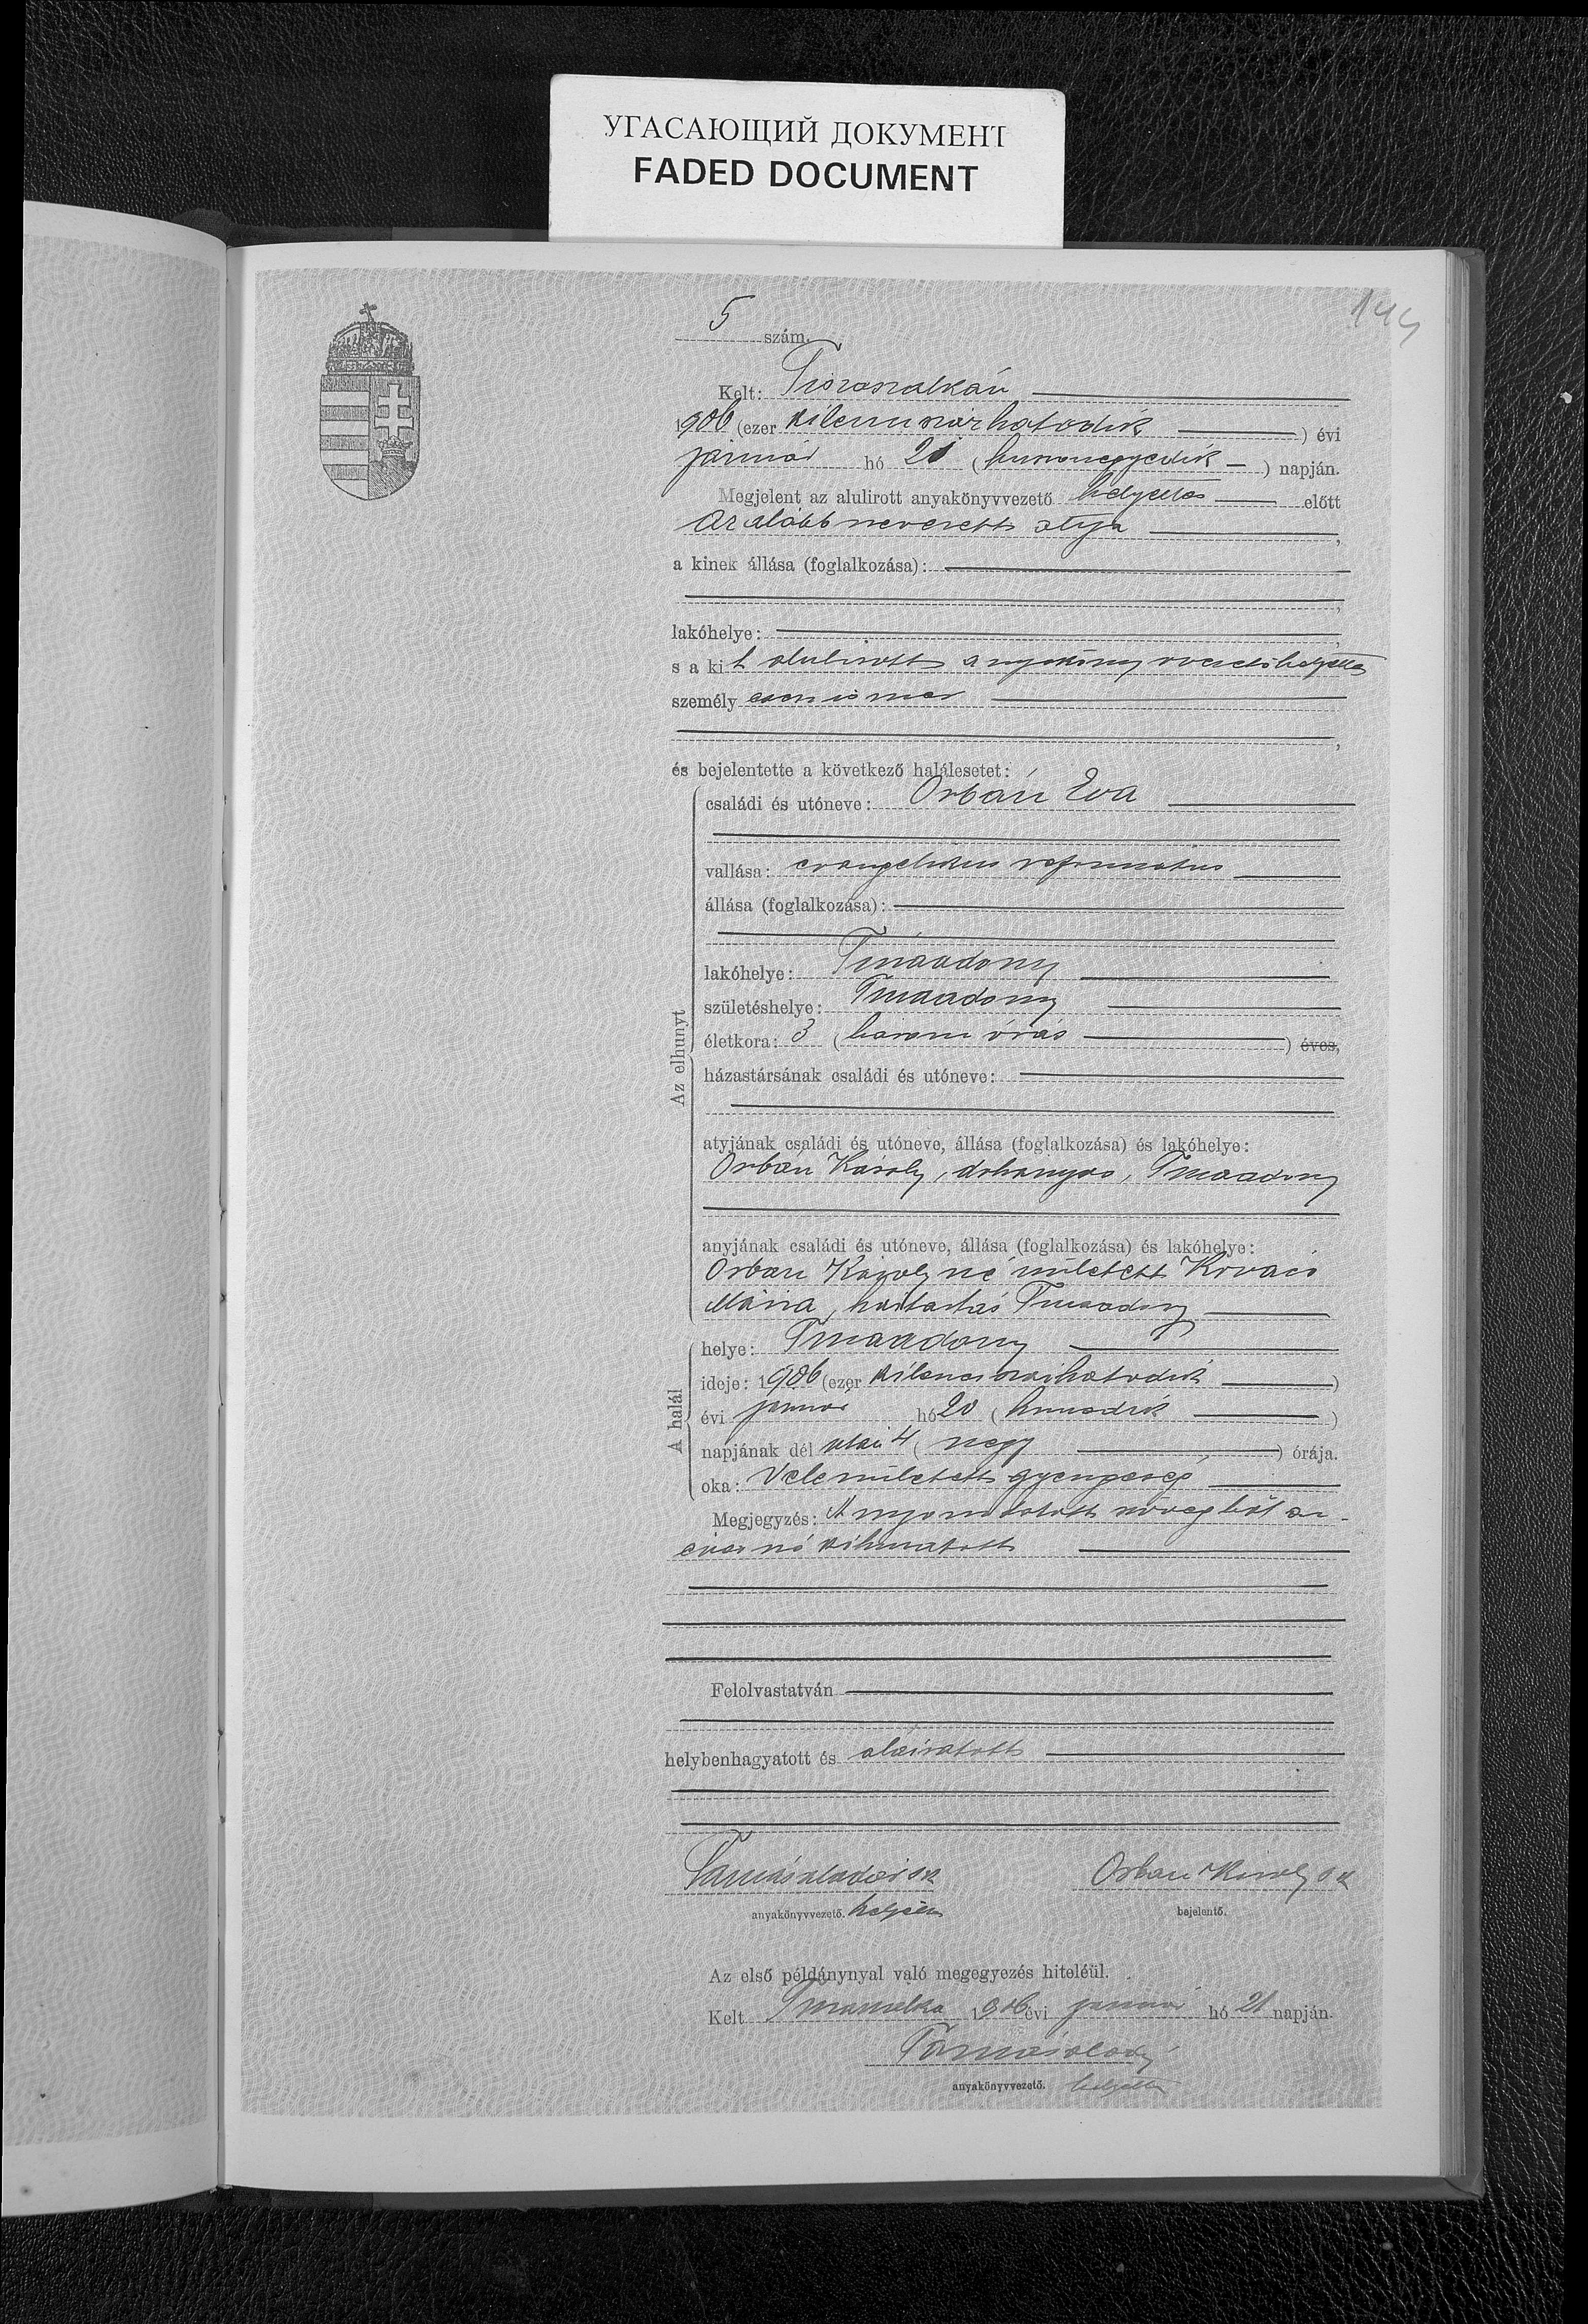 УГАСАЮЩИЙ ДОКУМЕНТ
FADED DOCUMENT
144
5 szám.
Kelt: Tiszaszalkán
1906 (ezer kilencszázhatodik ) évi
január hó 21 ( huszonegyedik ) napján.
Megjelent az alulirott anyakönyvvezető helyettes előtt
az alább nevezett atyja ,
a kinek állása (foglalkozása):
,
lakóhelye: ,
s a kit alulirott anyakönyvvezető helyettes
személyesen ismer
,
és bejelentette a következő halálesetet:
Az elhunyt
családi és utóneve: Orbán Éva
vallása: evangelikus reformatus
állása (foglalkozása):
lakóhelye: Tiszaadony
születéshelye: Tiszaadony
életkora: 3 ( három órás ) éves,
házastársának családi és utóneve:
atyjának családi és utóneve, állása (foglalkozása) és lakóhelye:
Orbán Károly, dohányos, Tiszaadony
anyjának családi és utóneve, állása (foglalkozása) és lakóhelye:
Orbán Károly né született Kovács
Mária, háztartás Tiszaadony
A halál
helye: Tiszaadony
ideje: 1906 (ezer kilencszázhatodik )
évi január hó 20 ( huszadik )
napjának dél után 4 ( négy ) órája.
oka: Veleszületett gyengeség
Megjegyzés: A nyomtatott szövegből az
éves szó kihuzatott
Felolvastatván
helybenhagyatott és aláiratott
Tamás Aladár sk Orbán Károly sk
anyakönyvvezető. helyettes bejelentő.
Az első példánynyal való megegyezés hiteléül.
Kelt Tiszaszalka 1906 évi január hó 21 napján.
Tamás Aladár
anyakönyvvezető. helyettes